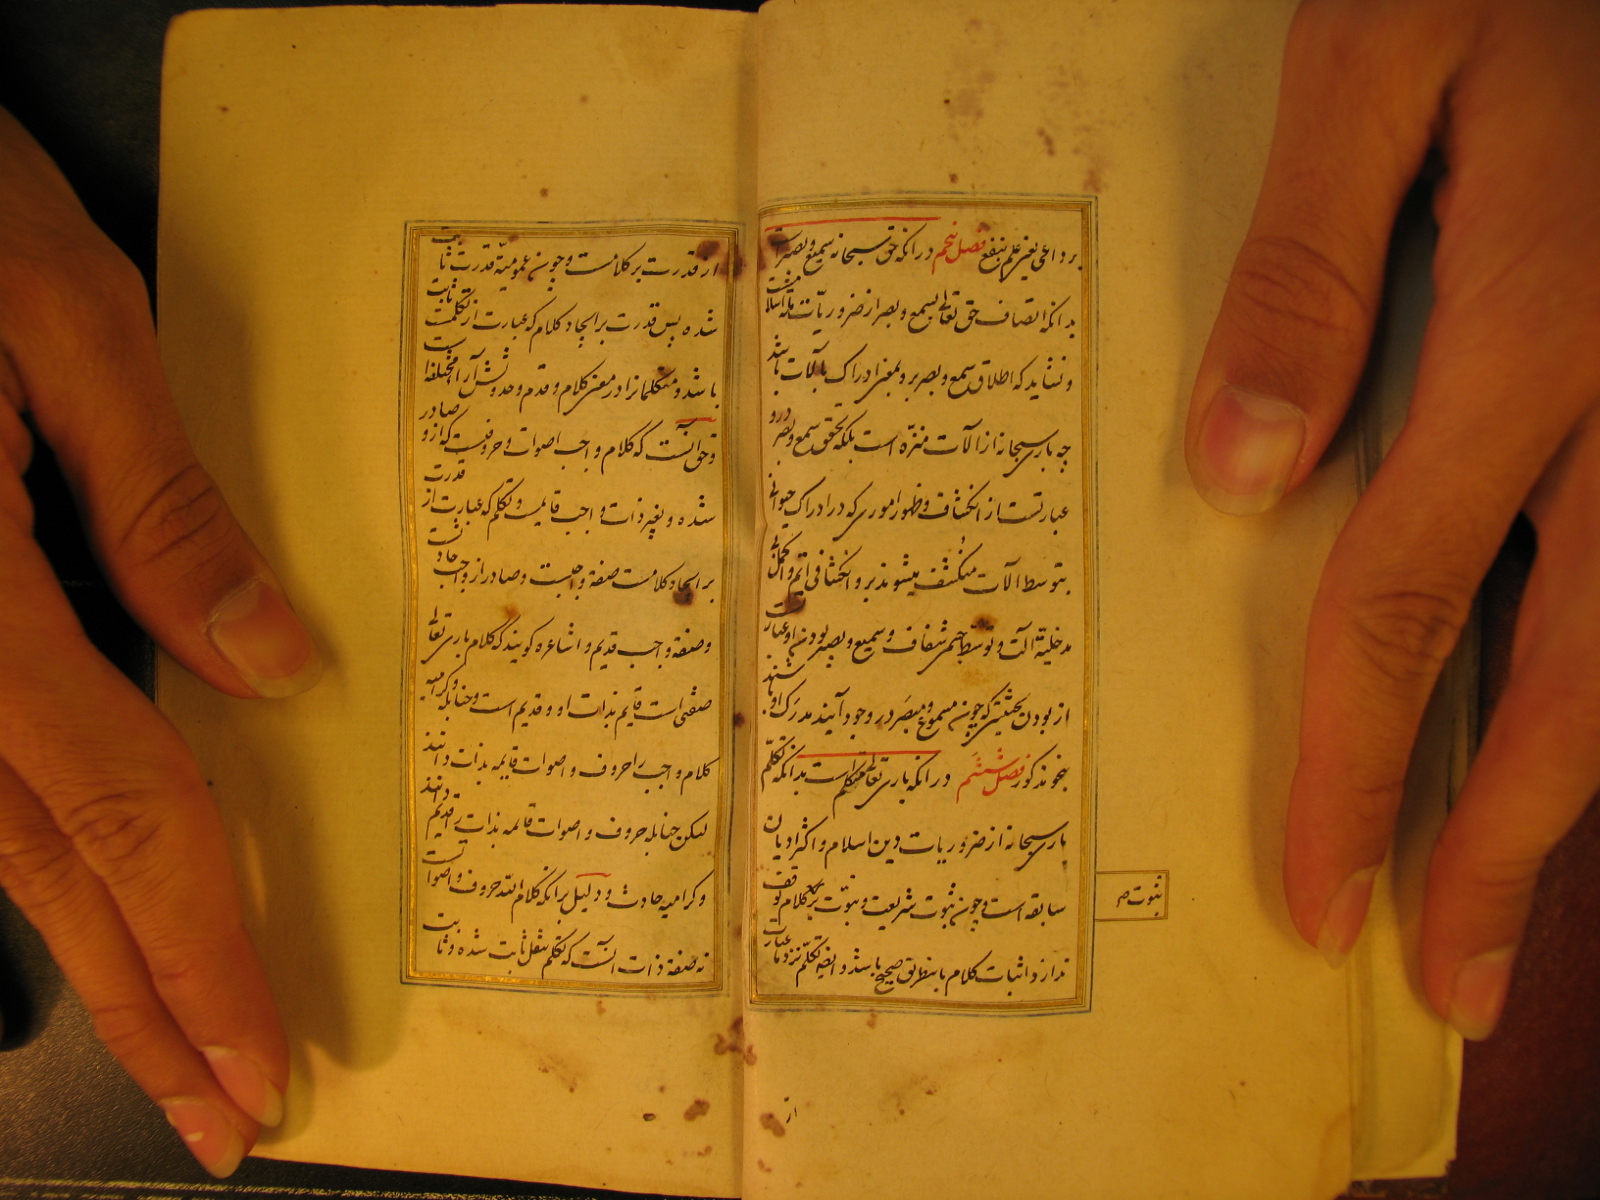 بر داعی یعنی علم بنفع فصل پنجم در آنکه حق سبحانه سمیع و بصیر است
بدانکه اتصاف حق تعالی بسمع و بصر از ضروریات ملة اسلامست
و نشاید که اطلاق سمع و بصر برو بمعنی ادراک بآلات باشد
چه باری سبحانه از آلات منزه است بلکه تحقق سمع و بصر درو
عبارتست از انکشاف و ظهور اموری که در ادراک حیوانی
بتوسط آلات منکشف میشوند برو انکشافی اتم و اکمل بی
مدخلیة آلت و توسط جسم شفاف و سمیع و بصیر بودن او عبارتست
از بودن بحیثیتی که چون مسموع و مبصر در وجود آیند مدرک او باشند
بنحو مذکور فصل ششم در آنکه باری تعالی متکلم است بدانکه تکلم
باری سبحانه از ضروریات دین اسلام و اکثر ادیان
سابقه است و چون ثبوت شریعت و نبوت بر کلام توقف
ندارد اثبات کلام باین طریق صحیح باشد و ایضا تکلم نزد ما عبارت
ثبوت ص
از
از قدرت بر کلامست و چون عمومیة قدرت ثابت
شده پس قدرت بر ایجاد کلام که عبارت از تکلمست ثابت
باشد و متکلمانرا در معنی کلام و قدم و حدوثش آراء مختلفه است
و حق آنست که کلام واجب اصوات و حروفیست که ازو صادر
شده و بغیر ذات واجب قایمست و تکلم که عبارت از قدرت
بر ایجاد کلامست صفة واجبست و صادر از واجب حادثست
و صفة واجب قدیم و اشاعره گویند که کلام باری تعالی
صفتی است قایم بذات او و قدیم است و حنابله و کرامیه
کلام واجب را حروف و اصوات قایمه بذات دانند
لیکن حنابله حروف و اصوات قائمه بذات را قدیم دانند
و کرامیه حادث و دلیل بر آنکه کلام الله حروف و اصواتست
نه صفة ذات آنست که تکلم بنقل ثابت شده و ثابت